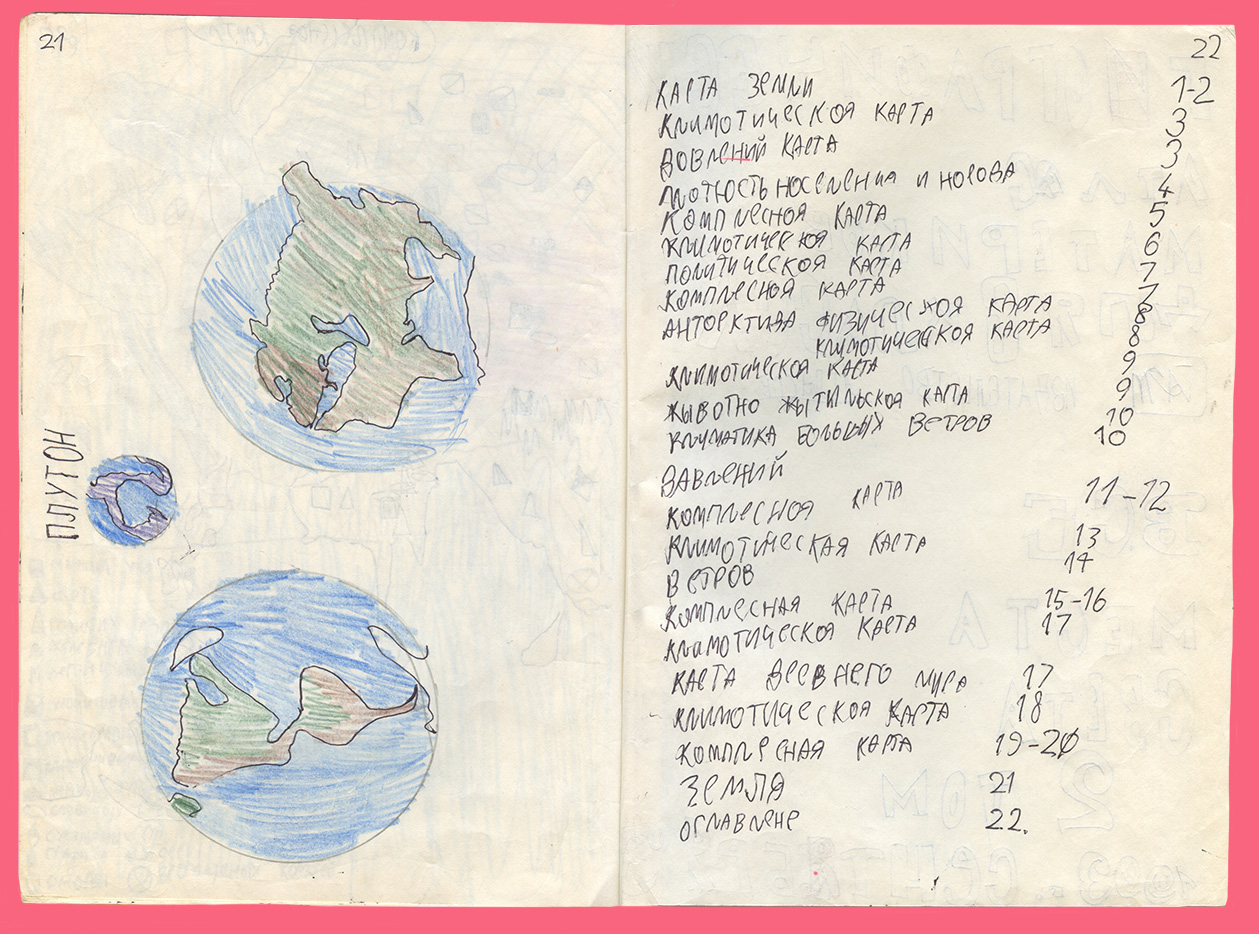 21
ПЛУТОН
22
КАРТА ЗЕМЛИ 1-2
КЛИМОТИЧЕСКОЯ КАРТА 3
ДОВЛЕНИЙ КАРТА 3
ПЛОТЮСТЬ НОСЕЛЕНИЯ И НОРОДА 4
КОМПЛЕСНОЯ КАРТА 5
КЛИМОТИЧЕСКОЯ КАРТА 6
ПОЛИТИЧЕСКОЯ КАРТА 7
КОМПЛЕСНОЯ КАРТА 7
АНТОРКТИДА ФИЗИЧЕСКОЯ КАРТА 8
КЛИМОТИЧЕСКОЯ КАРТА 8
КЛИМОТИЧЕСКОЯ КАРТА 9
ЖЫВОТНО ЖЫТИЛЬСКОЯ КАРТА 9
КЛИМАТИКА БОЛЬШЫХ ВЕТРОВ 10
ДАВЛЕНИЙ 10
КОМПЛЕСНОЯ КАРТА 11-12
КЛИМОТИЧЕСКАЯ КАРТА 13
ВЕТРОВ 14
КОМПЛЕСНАЯ КАРТА 15-16
КЛИМОТИЧЕСКОЯ КАРТА 17
КАРТА ДРЕВНЕГО МИРА 17
КЛИМОТИЧЕСКОЯ КАРТА 18
КОМПЛЕСНАЯ КАРТА 19-20
ЗЕМЛЯ 21
ОГЛАВЛЕНЕ 22.